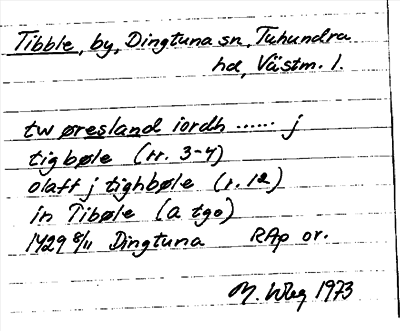 Tibble, by, Dingtuna sn, Tuhundra
hd, Västm. l.
tw øresland iordh ...... j
tigbøle (rr. 3-4)
olaff j tighbøle (r. 12)
in Tibøle (a tgo)
1429 8/11 Dingtuna RAp or.
M. Wbg 1973